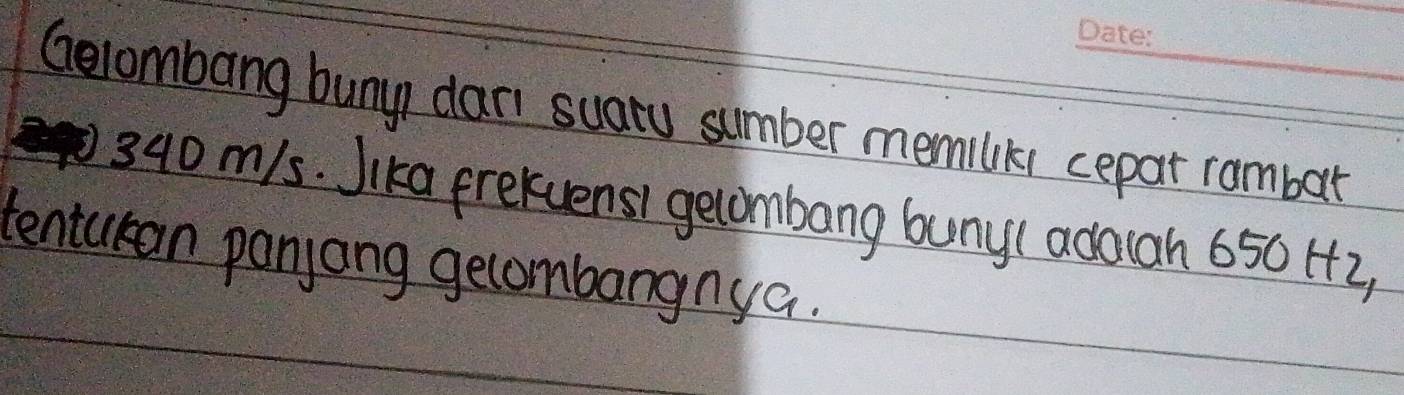 Date:
Gelombang bunyi dari suatu sumber memiliki cepat rambat
340 m/s. Jika frekuensi gelombang bunyi adalah 650 Hz,
tentukan panjang gelombangnya.